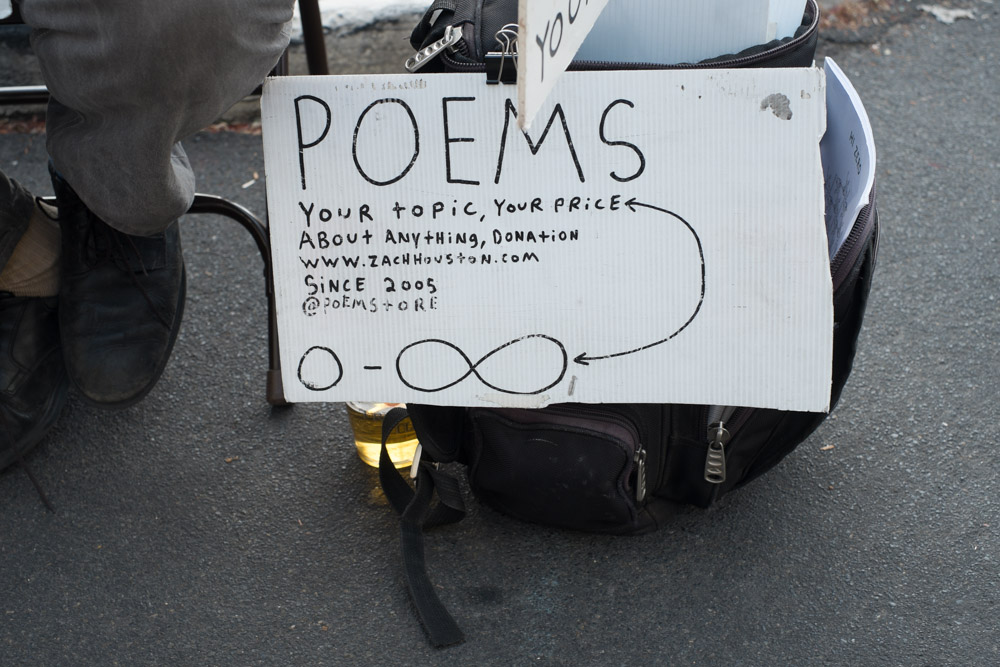 YOU
POEMS
YOUR TOPIC, YOUR PRICE
ABOUT ANYTHING, DONATION
WWW.ZACHHOUSTON.COM
SINCE 2005
@POEMSTORE
0 - ∞